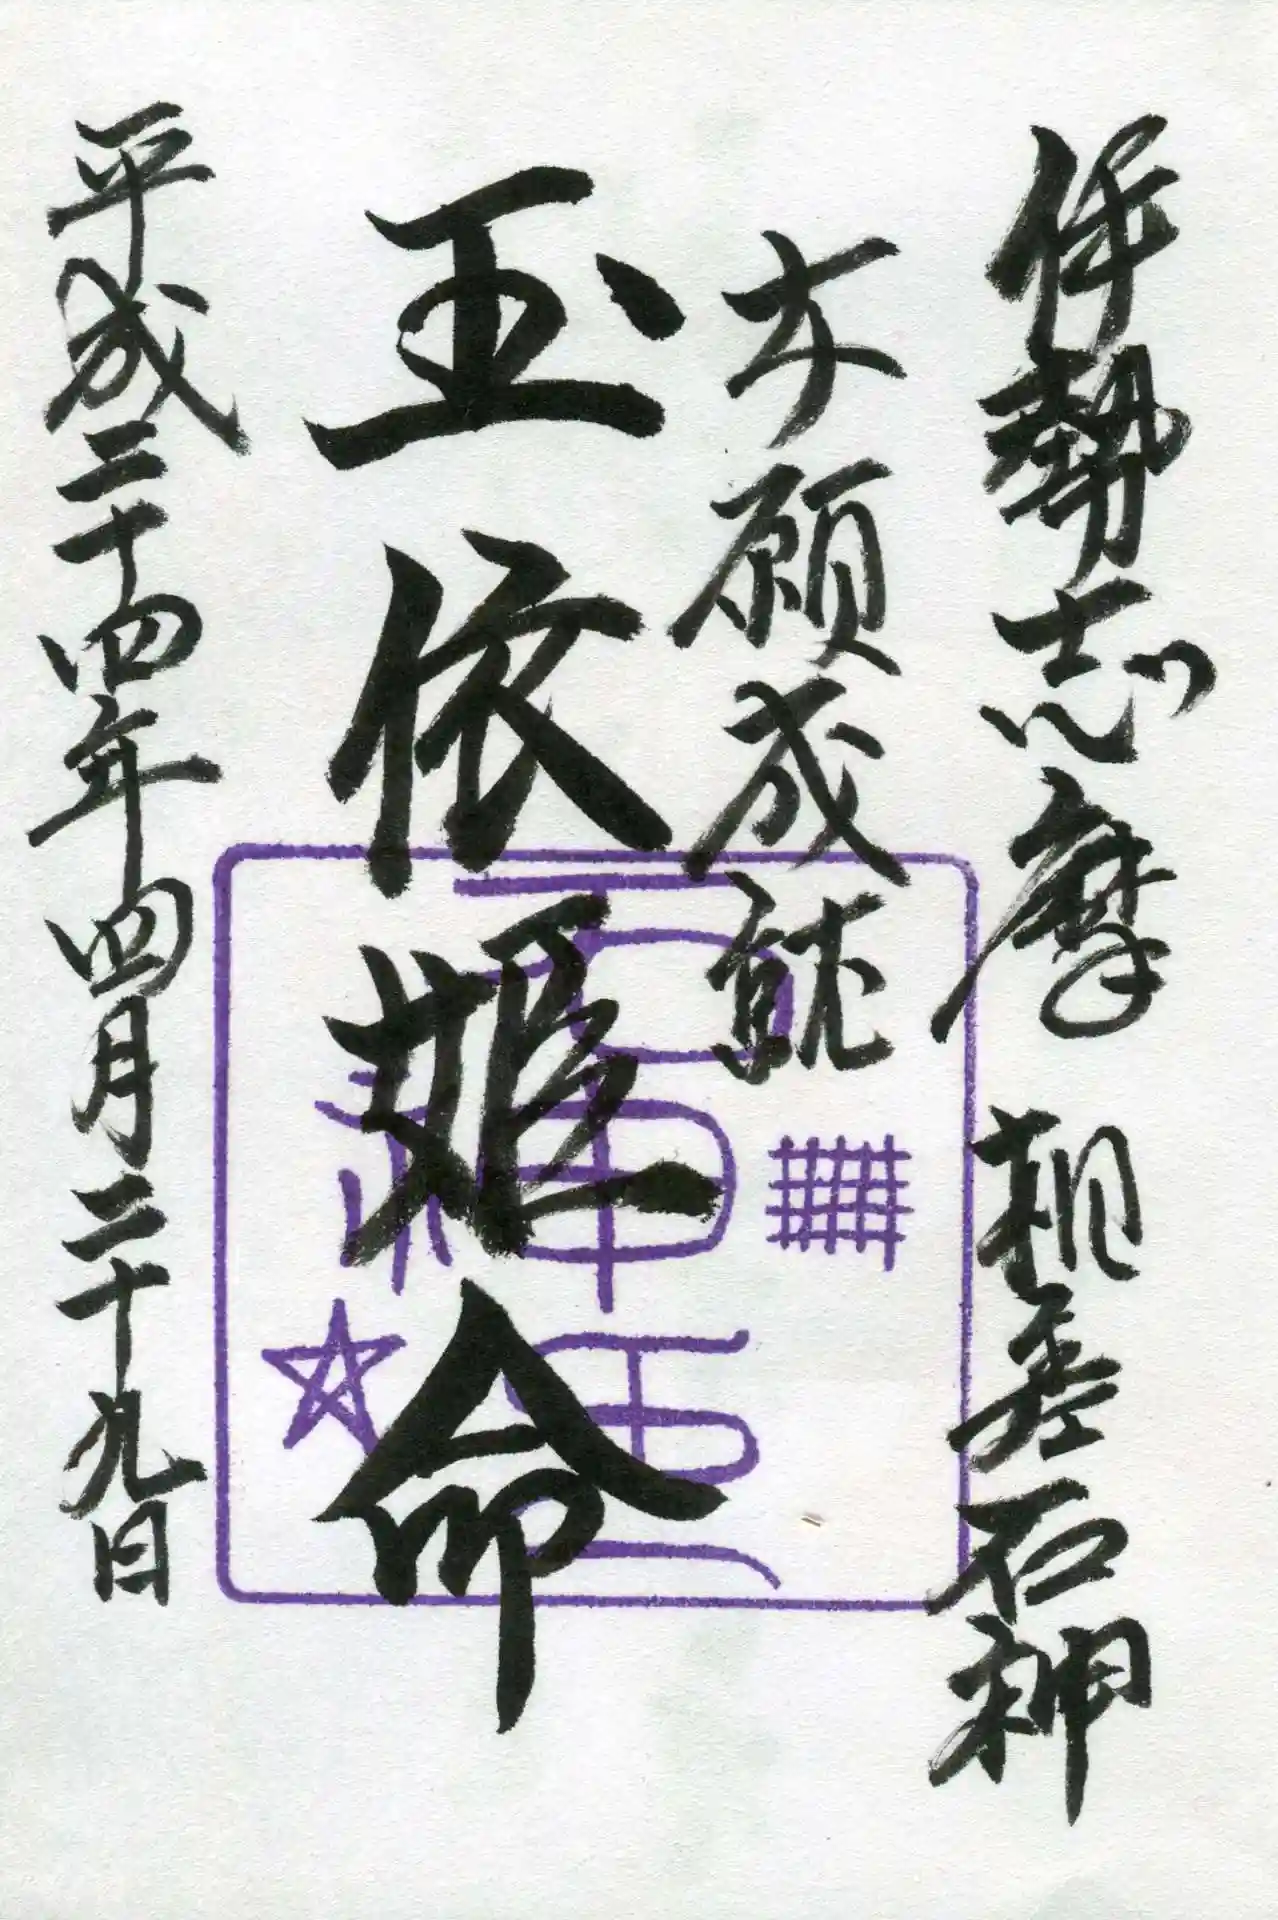 伊勢志摩 相差石神
本願成就
玉依姫命
平成二十四年四月二十九日